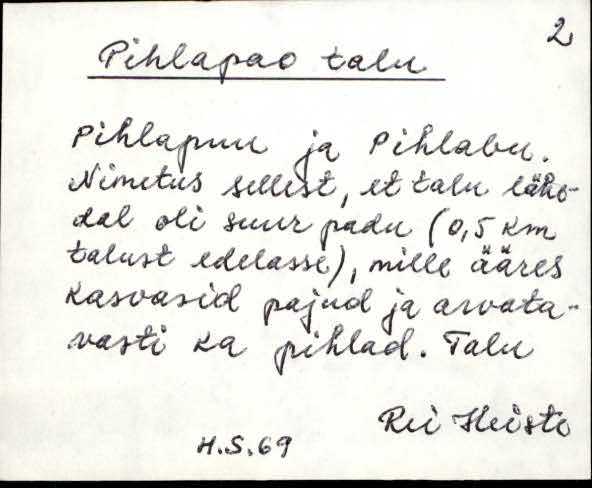 2
Pihlapao talu
Pihlapuu ja Pihlabu.
Nimetus sellest, et talu lähe-
dal oli suur padu (0,5 km
talust edelasse), mille ääres
kasvasid pajud ja arvata-
vasti ka pihlad. Talu
Rei Heiste
H.S.69